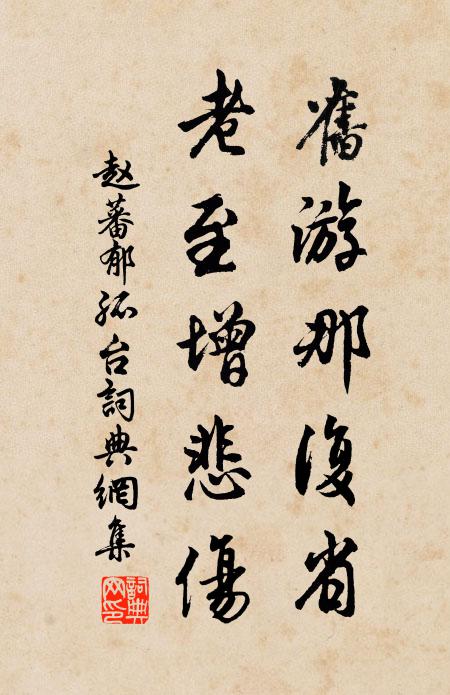 舊游那復省
老至增悲傷
赵蕃郁孤台詞典網集
詞典网印